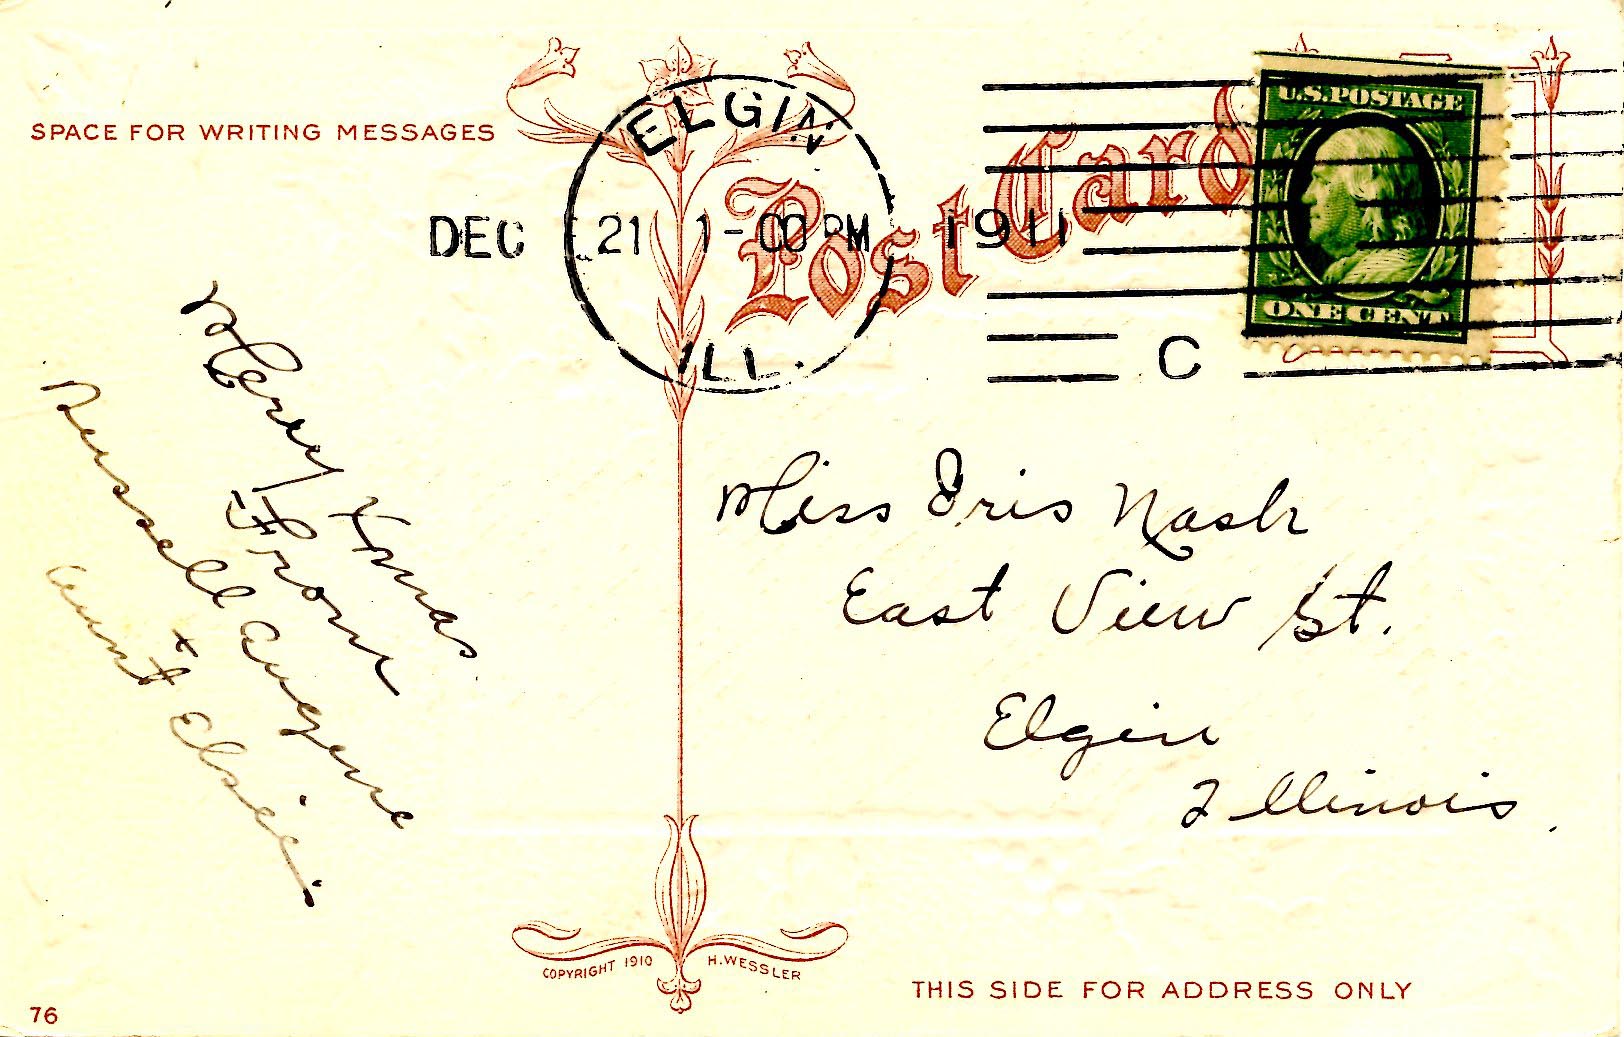 SPACE FOR WRITING MESSAGES
Post Card
ELGIN
DEC 21 1-00 PM 1911
ILL.
C
U.S.POSTAGE
ONE CENT
Merry Xmas
From
Russell Eugene
+
Aunt Elsie.
Miss Iris Nash
East View St.
Elgin
Illinois.
COPYRIGHT 1910 H.WESSLER
THIS SIDE FOR ADDRESS ONLY
76